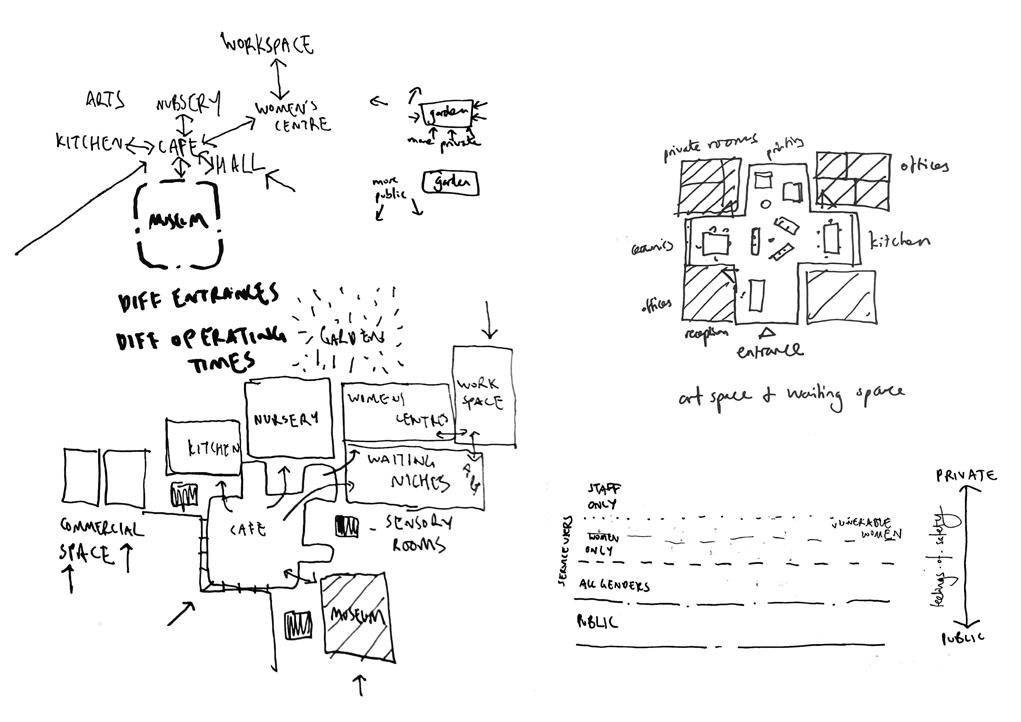 WORKSPACE
ARTS
NURSERY
WOMEN'S
CENTRE
KITCHEN
CAFE
HALL
MUSEUM
garden
more private
more
public
garden
DIFF ENTRANCES
DIFF OPERATING
TIMES
GARDEN
WORK
SPACE
WOMENS
CENTRES
NURSERY
KITCHEN
WAITING
NICHES
CAFE
SENSORY
ROOMS
COMMERCIAL
SPACE
MUSEUM
private rooms
printing
offices
ceramics
kitchen
offices
reception
entrance
art space & waiting space
PRIVATE
STAFF
ONLY
VUNERABLE
WOMEN
WOMEN
ONLY
SERVICE USERS
ALL GENDERS
feelings of safety
PUBLIC
PUBLIC